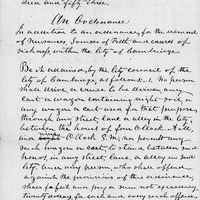 dred and fifty three.
An Ordinance
In addition to an ordinance, for the removal
of Nuisances, Sources of Filth and causes of
sickness within the City of Cambridge.
Be it ordained, by the City Council of the
City of Cambridge, as follows: 1. No person
shall drive, or cause to be driven, any
cart or wagon containing night soil, or
any wagon or cart used for that purpose
through any street, lane or alley in the city,
between the hours of four O'clock A.M.,
and O'Clock P.M., nor permit any
such wagon or cart, to stand between said
hours in any street, lane, or alley in said
City: and any person who shall offend
against the provisions of this ordinance,
shall forfeit and pay a sum not exceeding
twenty dollars for each and every such offence,